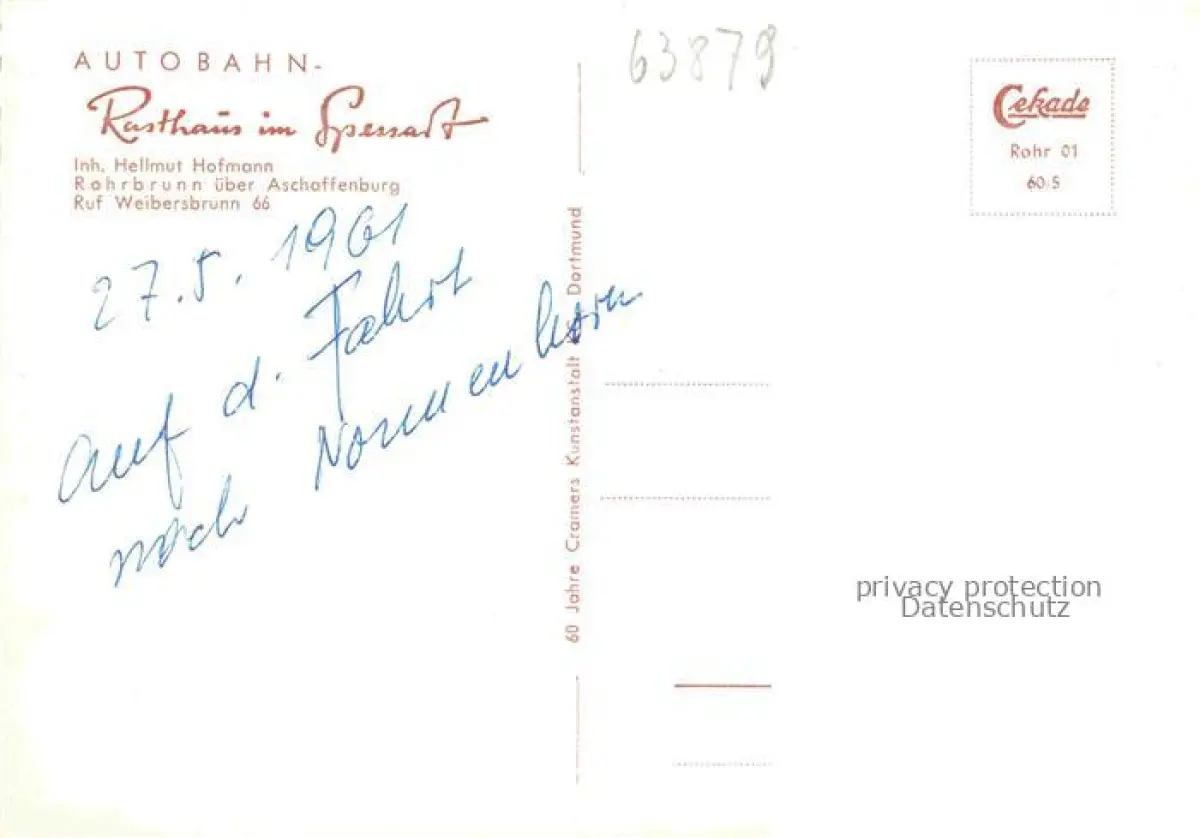 AUTOBAHN-
Rasthaus im Spessart
Inh. Hellmut Hofmann
Rohrbrunn über Aschaffenburg
Ruf Weibersbrunn 66
27.5.1961
auf d. Fahrt
nach Nonnenhorn
60 Jahre Cramers Kunstanstalt Dortmund
63879
Cekade
Rohr 01
60/5
privacy protection
Datenschutz